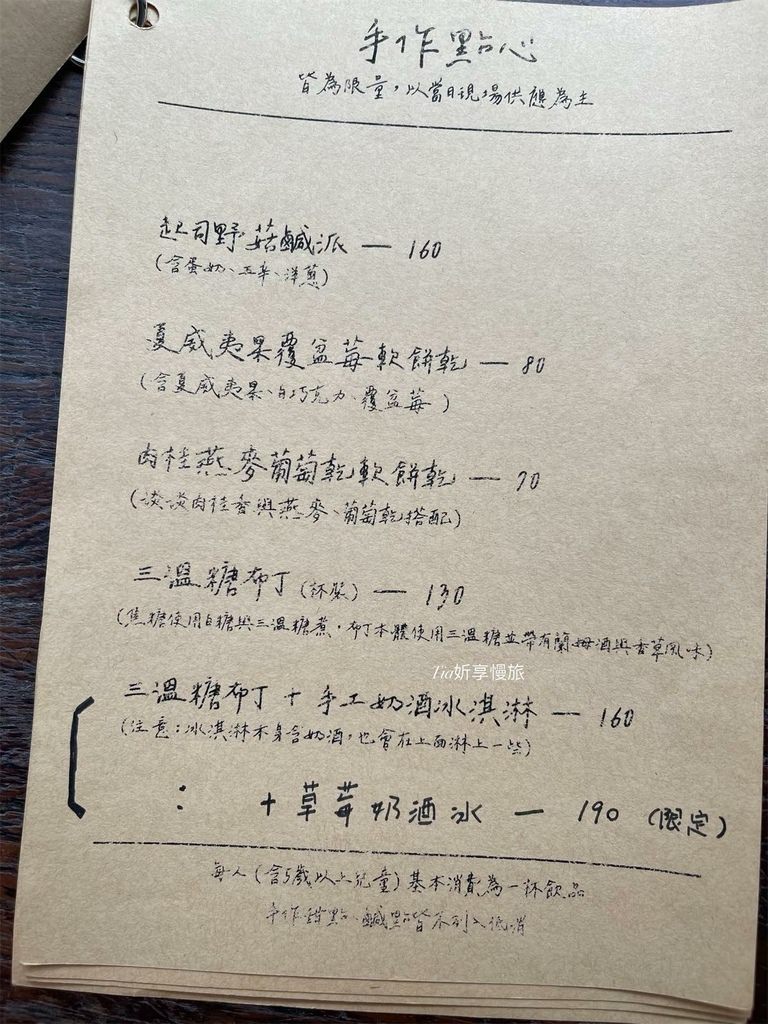 手作點心
皆為限量，以當日現場供應為主
起司野菇鹹派 — 160
(含蛋奶、五辛、洋蔥)
夏威夷果覆盆莓軟餅乾 — 80
(含夏威夷果、白巧克力、覆盆莓)
肉桂燕麥葡萄乾軟餅乾 — 70
(淡淡肉桂香與燕麥、葡萄乾搭配)
三溫糖布丁(杯裝) — 130
(焦糖使用白糖與三溫糖煮，布丁本體使用三溫糖並帶有蘭姆酒與香草風味)
Tia妡享慢旅
三溫糖布丁 + 手工奶酒冰淇淋 — 160
(注意：冰淇淋本身含奶酒，也會在上面淋上一些)
： + 草莓奶酒冰 — 190 (限定)
每人(含5歲以上兒童)基本消費為一杯飲品
手作甜點、鹹點皆不列入低消